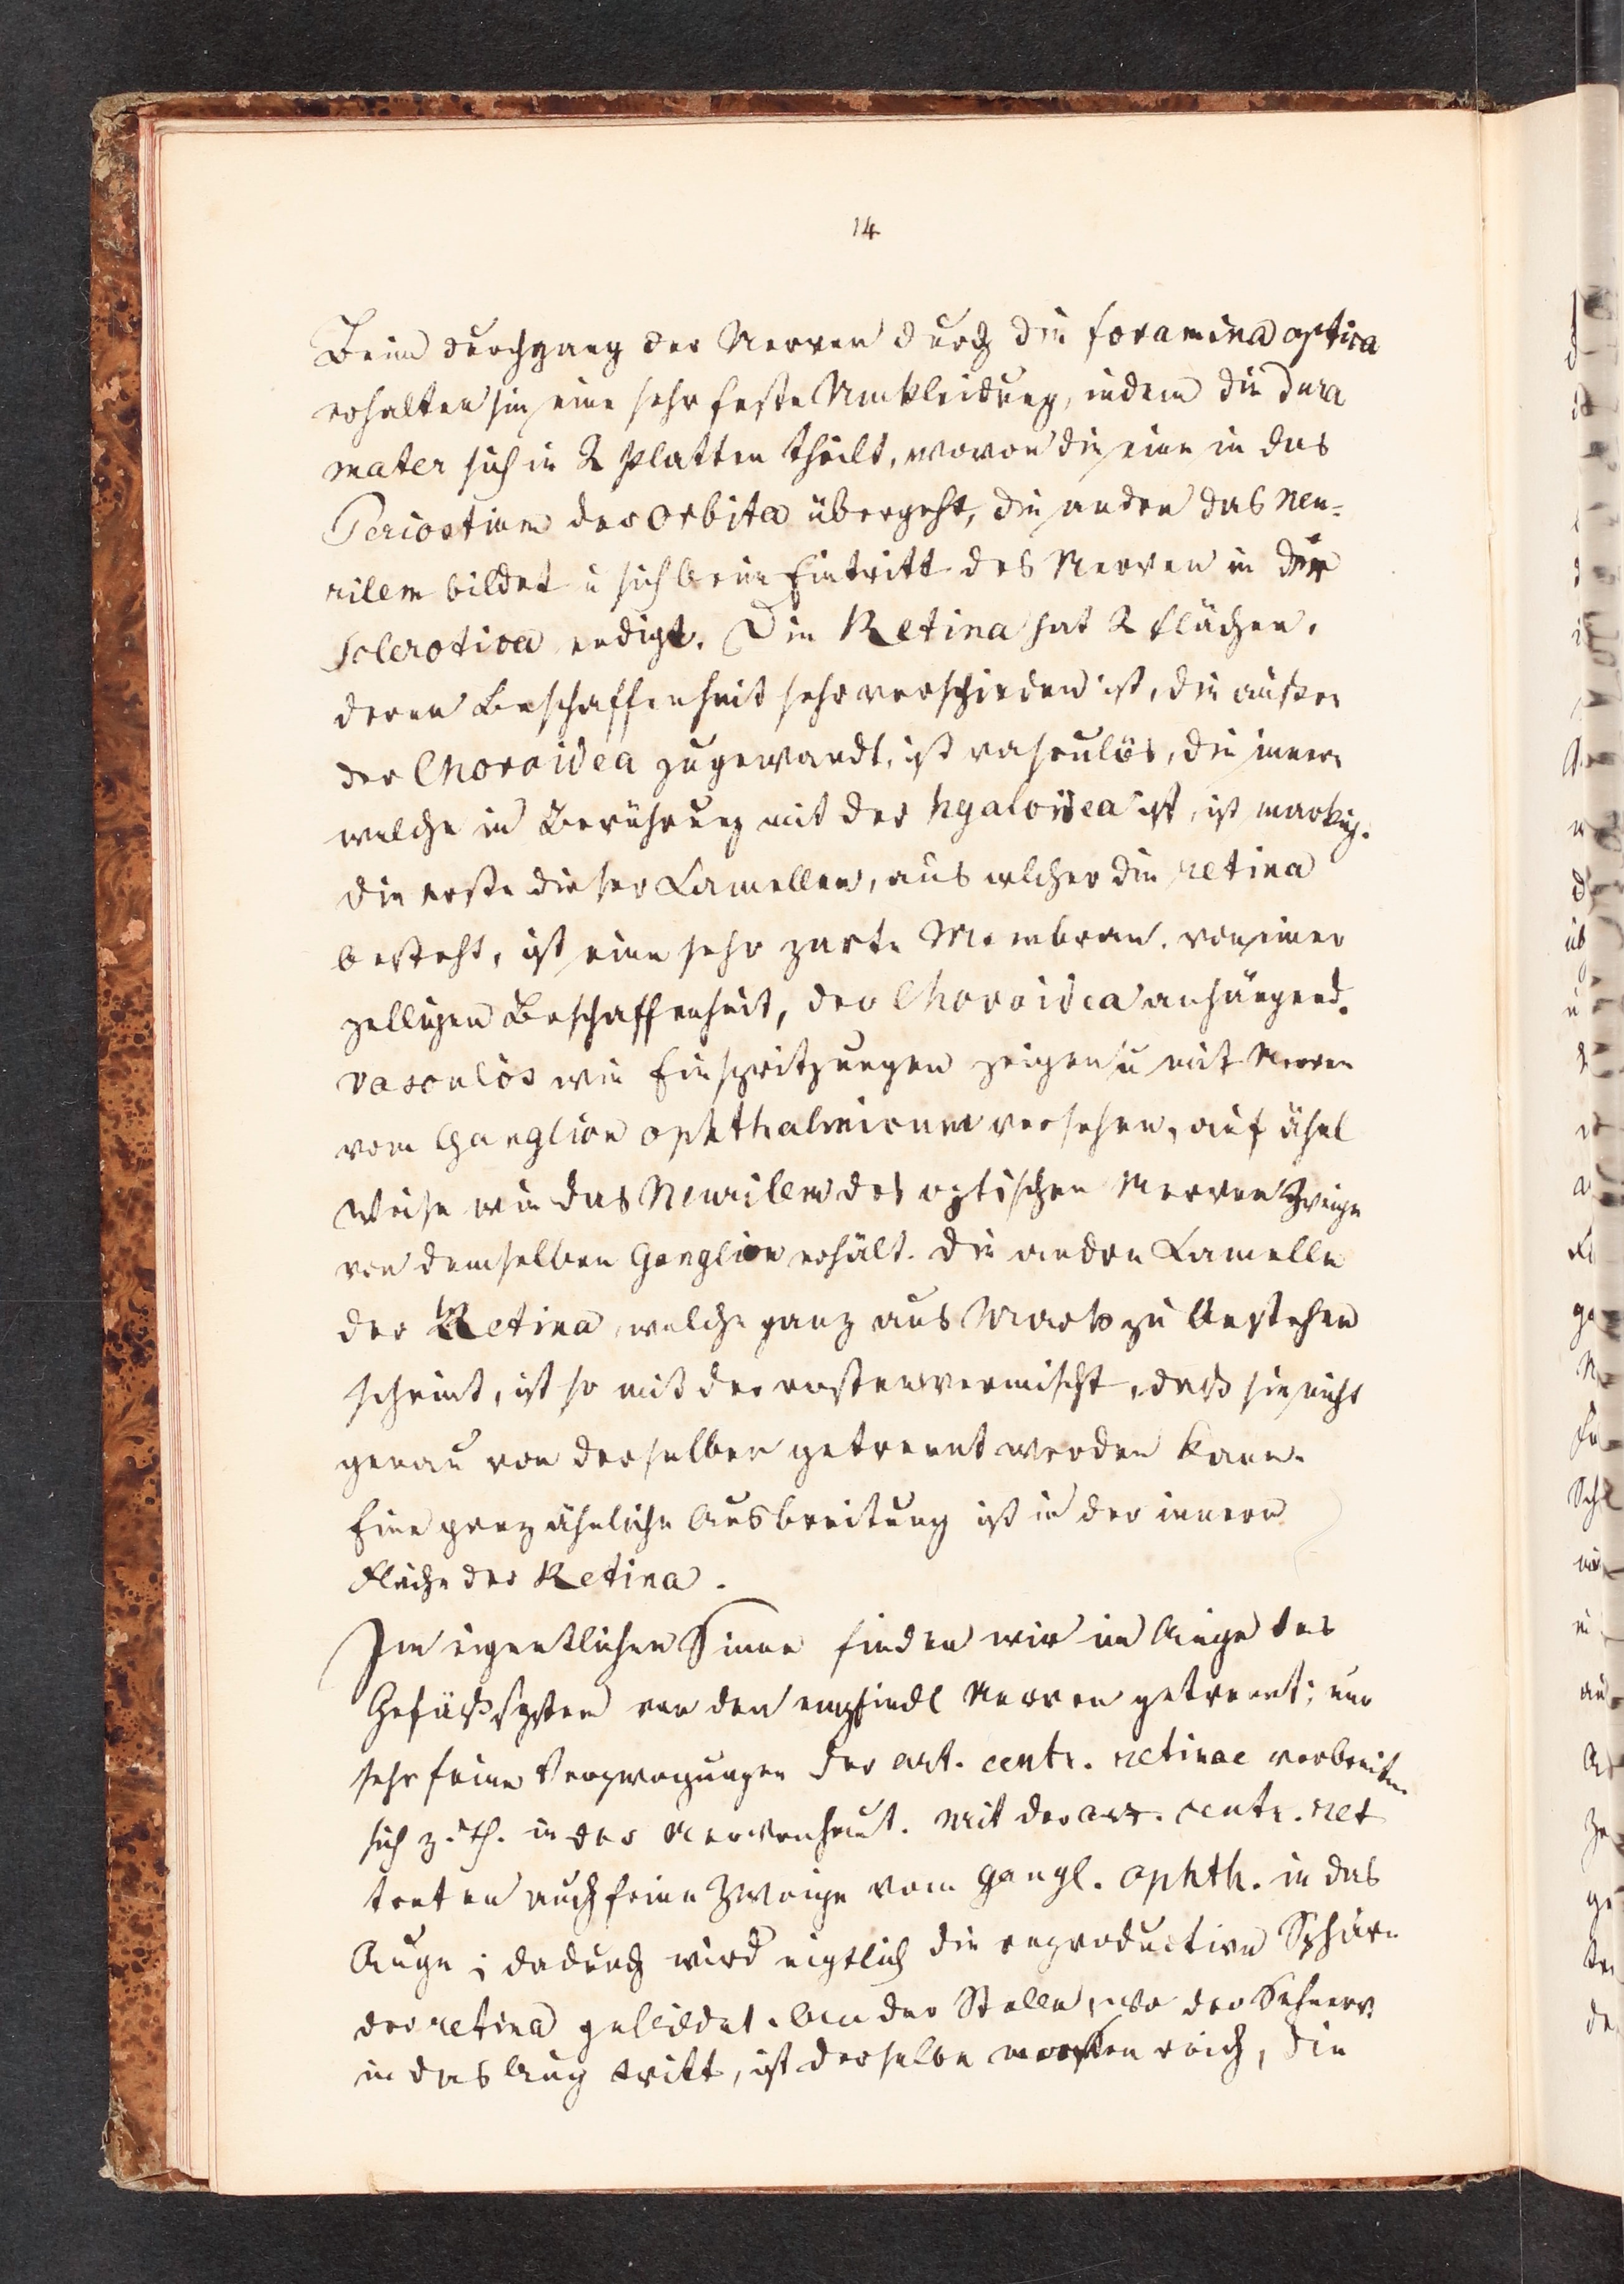 14
Beim durchgang der Nerven durch die foramina optica
erhalten sie eine sehr feste Umkleidung, indem die dura
mater sich in 2 Platten theilt, wovon die eine in das
Periostium der Orbita übergeht, die andere das Neu-
rilem bildet u sich beim Eintritt des Nerven in die
Sclerotica endigt. Die Retina hat 2 Flächen,
deren Beschaffenheit sehr verschieden ist, die äußere
der Choroidea zugewandt, ist vasculös, die innere
welche in Berührung mit der hyaloidea ist, ist markig.
Die erste dieser Lamellen, aus welcher die retina
besteht, ist eine sehr zarte Membran, von einer
zelligen Beschaffenheit, der Choroidea anhängend.
vasculös wie Einspritzungen zeigen u mit Nerven
vom Ganglion ophthalmicum versehen, auf ähnl
Weise wie das Neurilem des optischen Nerven Zweige
von demselben Ganglion erhält. Die andere Lamelle
der Retina, welche ganz aus Mark zu bestehen
scheint, ist so mit der ersten vermischt, daß sie nicht
genau von derselben getrennt werden kann.
Eine ganz ähnliche Ausbreitung ist in der innern
Fläche der Retina.
Im eigentlichen Sinne finden wir im Auge das
Gefäßsystem von den empfindl Nerven getrennt; nur
sehr feine Verzweigungen der art. centr. retinae verbreiten
sich z. Th. in der Nervenhaut. Mit der art. centr. ret
treten auch feine Zweige vom gangl. ophth. in das
Auge; dadurch wird eigtlich die reproductive Sphäre
der retina gebildet. An der Stelle, wo der Sehnerv
in das Aug tritt, ist derselbe reich, die